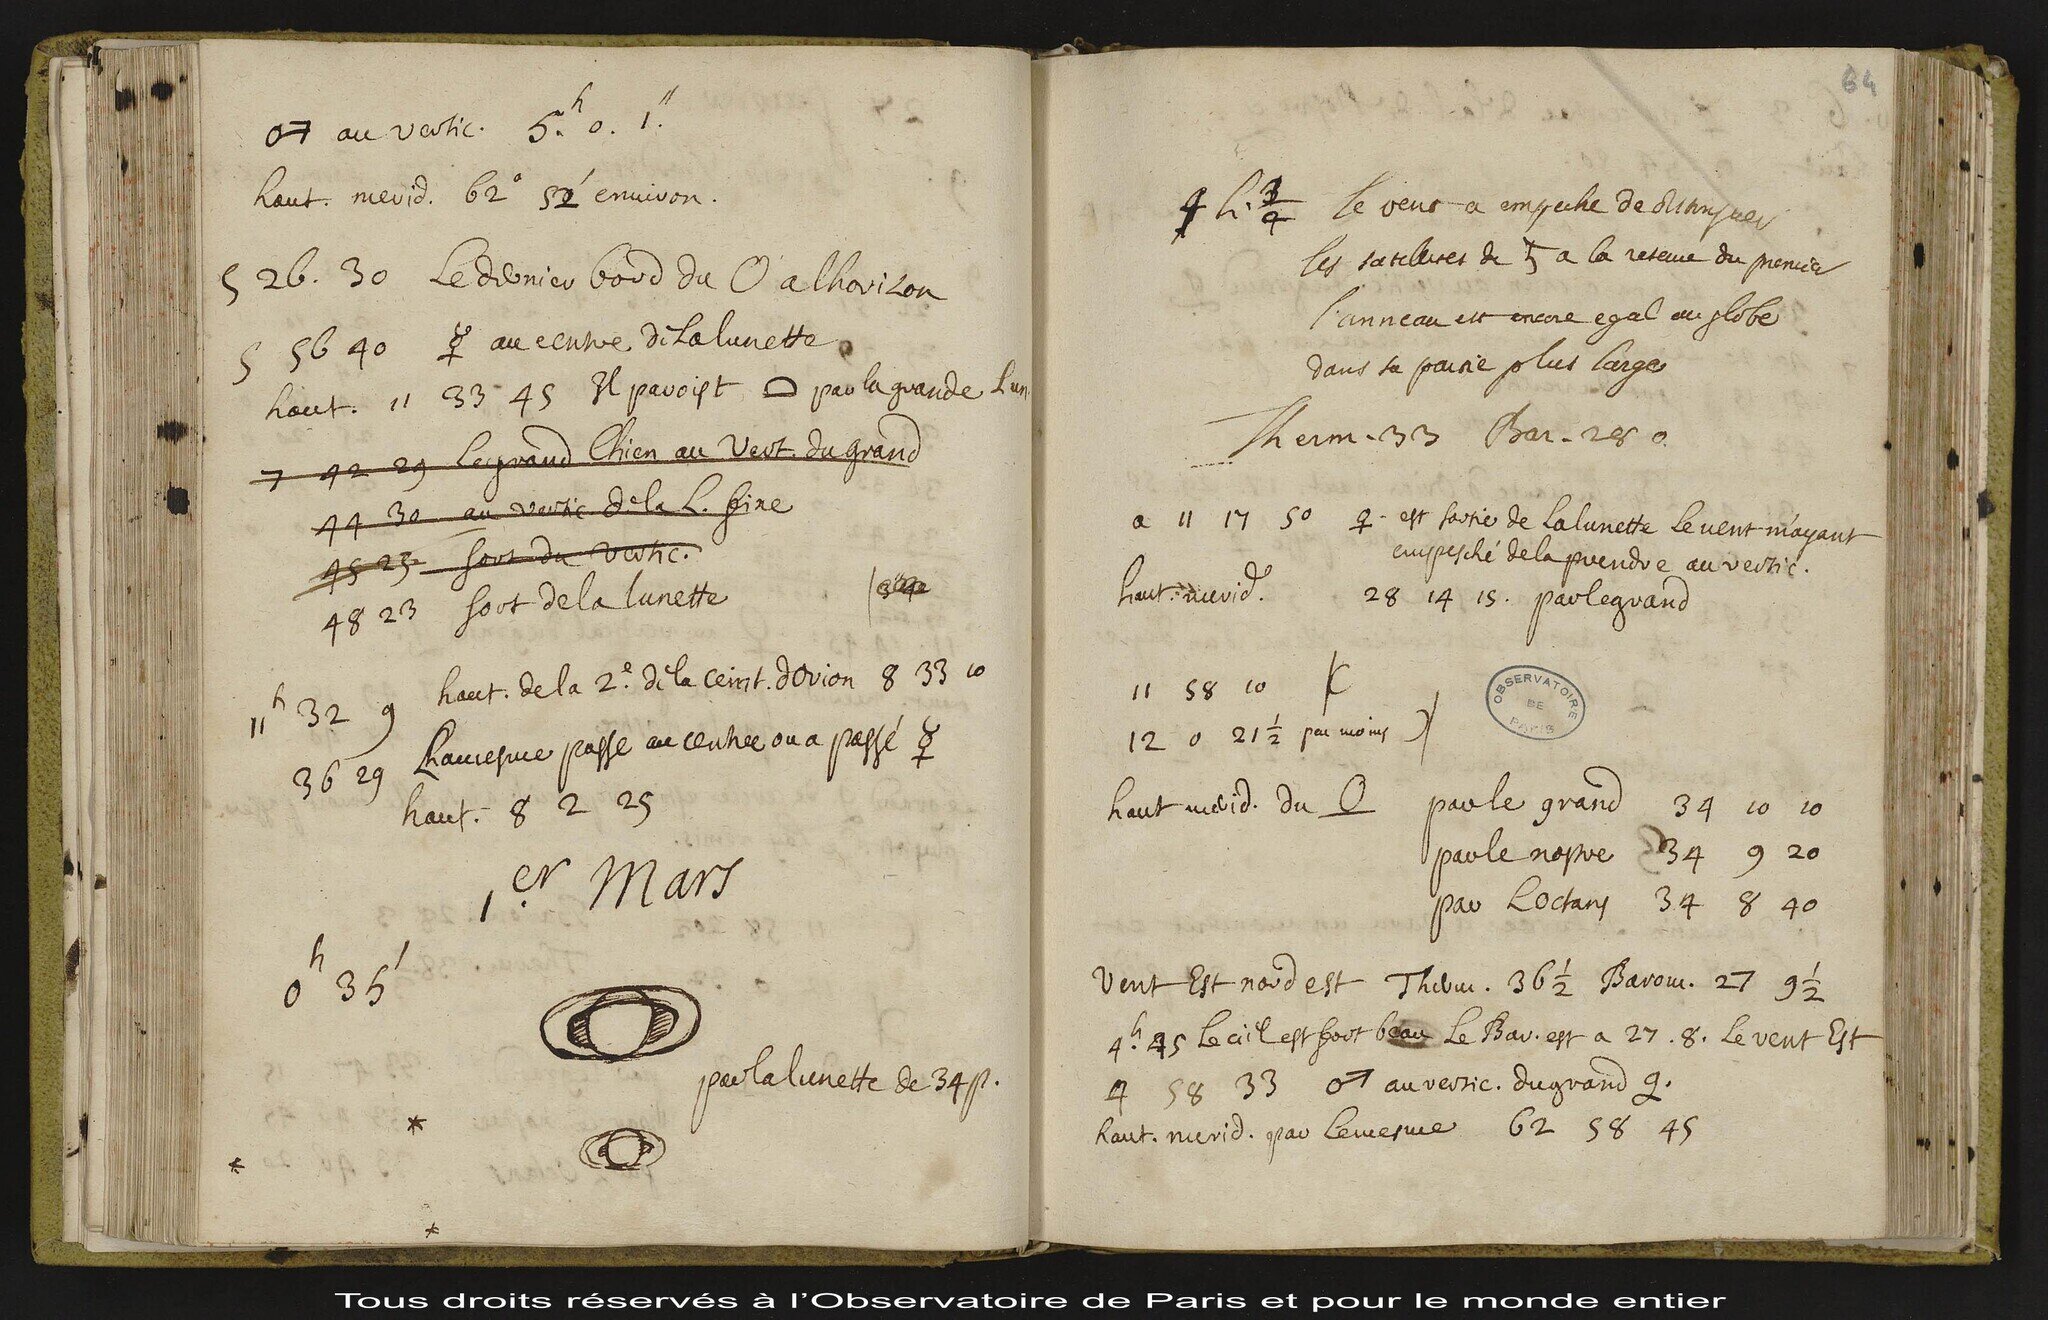 ♂ au vertic. 5.h 0. 1."
haut. merid. 62° 52' environ.
5 26. 30 Le dernier bord du O a lhorizon
5 56 40 ☿ au centre de La lunette
haut. 11 33 45 Il paroist par la grande Lun.
7 42 29 Le grand Chien au Vert. du grand
44 30 au vertic de la L. fixe
45 25 sort du vertic.
48 23 sort de la lunette
11h 32 9 haut. de la 2.e de la ceint. dOrion 8 33 10
36 29 La mesme passe au centre ou a passé ☿
haut. 8 2 25
1.er Mars
0h 35'
par la lunette de 34 p.
64
4 h. 3/4 le vent a empeche de distinguer
les satellites de ♄ a la reserve du premier
l'anneau est encore egal au globe
dans sa partie plus large
Therm. 33 Bar. 28 0
a 11 17 50 ♀ est sortie de La lunette Le vent m'ayant
empesché de la prendre au vertic.
haut. merid. 28 14 15. par le grand
11 58 10
12 0 21 1/2 peu moins
OBSERVATOIRE DE PARIS
haut merid. du O par le grand 34 10 10
par le nostre 34 9 20
par Loctans 34 8 40
Vent Est nord est Therm. 36 1/2 Barom. 27 9 1/2
4h. 45 Le ciel est fort beau Le Bar. est a 27. 8. Le vent Est
4 58 33 ♂ au vertic. du grand q.
haut. merid. par Le mesme 62 58 45
Tous droits réservés à l'Observatoire de Paris et pour le monde entier